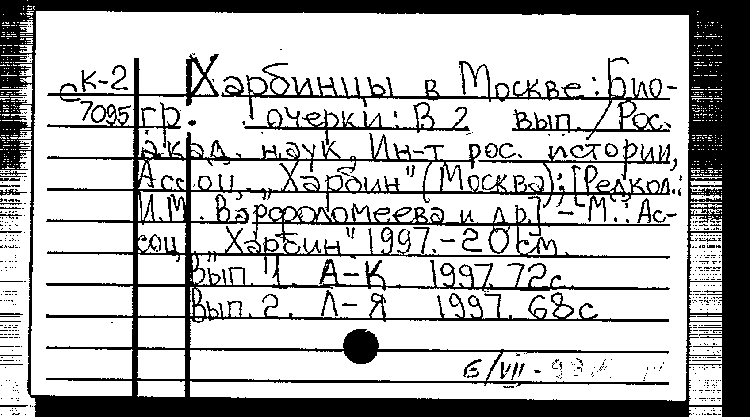 К-2 Харбинцы в Москве: Био-
с 7095 гр. очерки: В 2 вып. / Рос.
акад. наук, Ин-т рос. истории,
Ассоц. „Харбин" (Москва); [Редкол.:
И.М. Варфоломеева и др.] – М.: Ас-
соц. „Харбин" 1997. – 20 см.
Вып. 1. А – К. 1997. 72 с.
Вып. 2. Л – Я 1997. 68 с
6/VII - 99